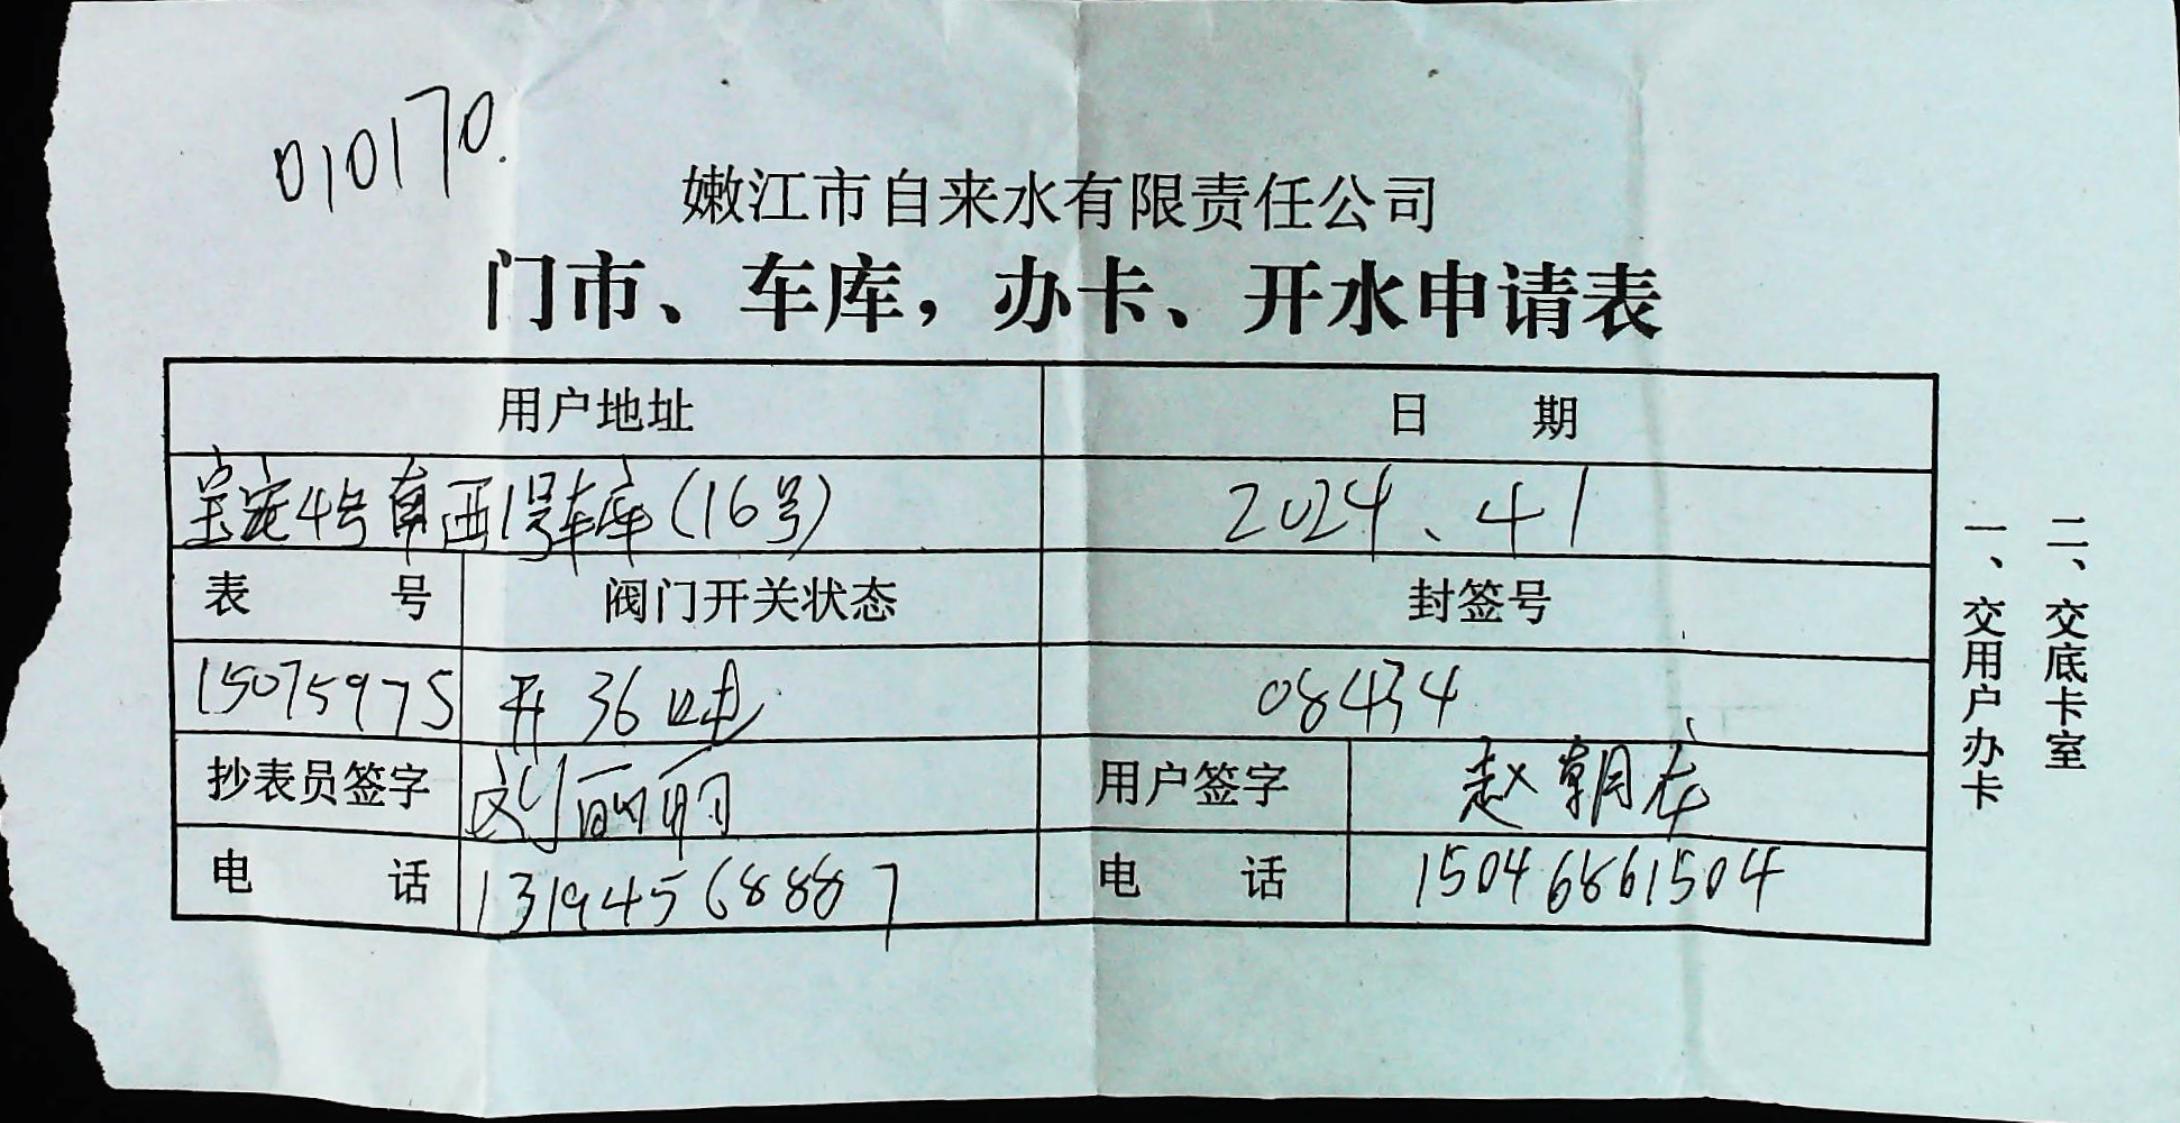 010170.
嫩江市自来水有限责任公司
门市、车库，办卡、开水申请表
用户地址 日 期
宝宠4号南西1号车库（16号） 2024、4 1
表 号 阀门开关状态 封签号
15075975 开 36吨 08434
抄表员签字 刘丽丽 用户签字 赵朝龙
电 话 13194568887 电 话 15046861504
一、交用户办卡
二、交底卡室